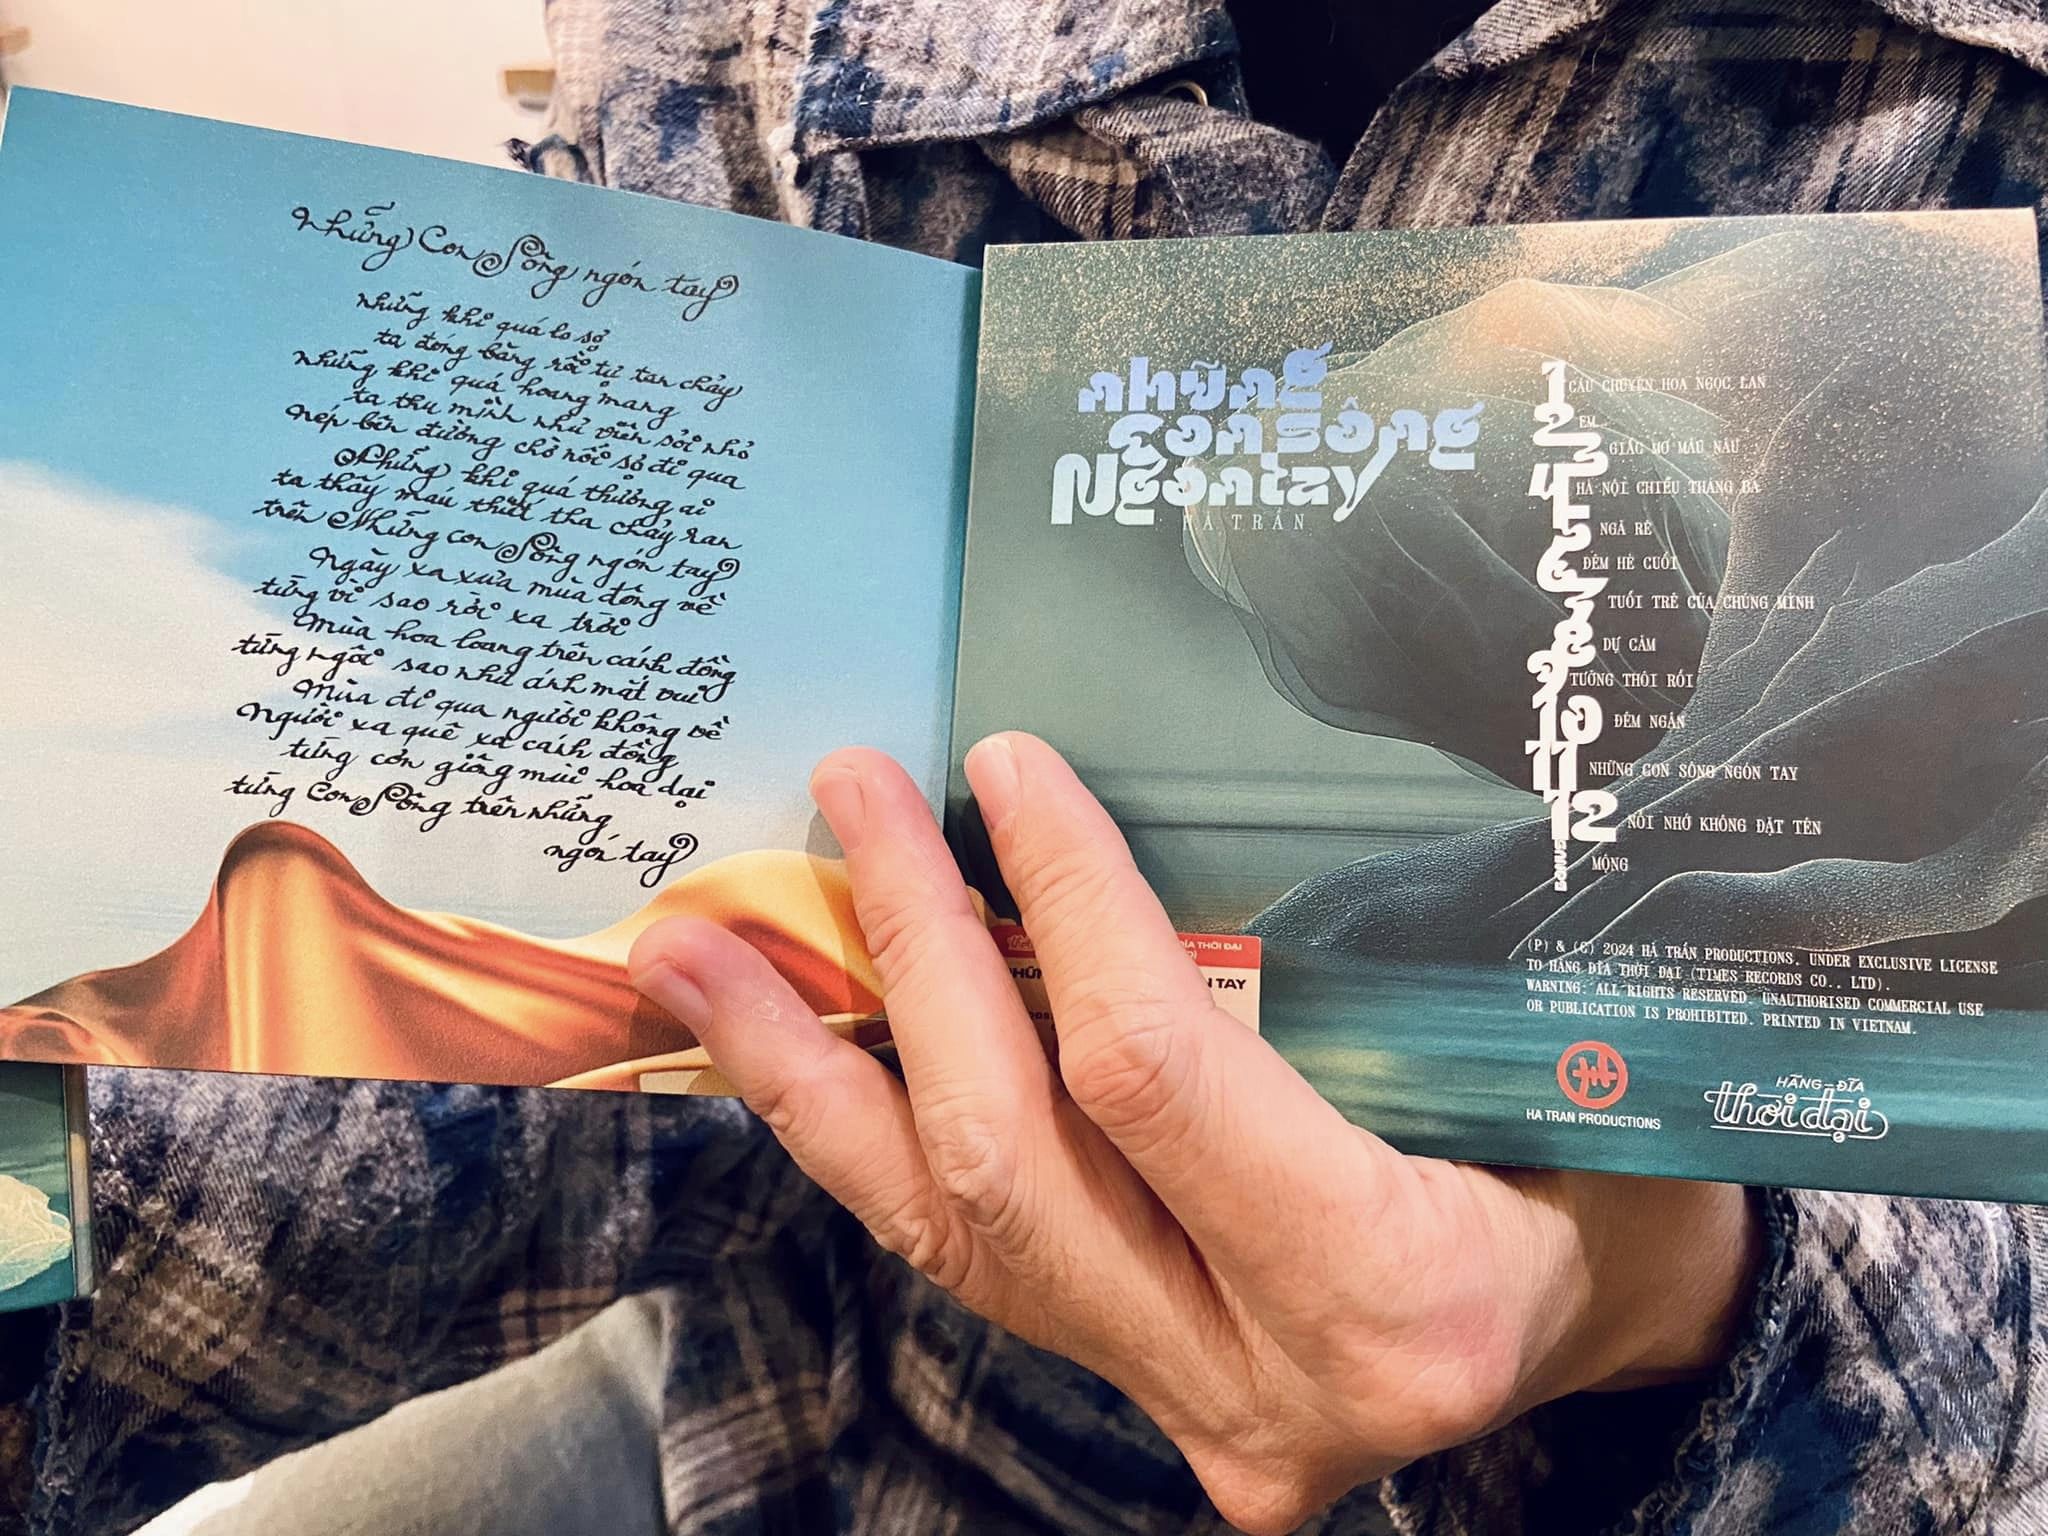 Những Con Sông ngón tay
những khi quá lo sợ
ta đóng băng rồi tự tan chảy
những khi quá hoang mang
ta thu mình như viên sỏi nhỏ
nép bên đường chờ nỗi sợ đi qua
Những khi quá thương ai
ta thấy máu thiết tha chảy ran
trên Những con Sông ngón tay
Ngày xa xưa mùa đông về
từng vì sao rời xa trời
Mùa hoa loang trên cánh đồng
từng ngôi sao như ánh mắt vui
Mùa đi qua người không về
Người xa quê xa cánh đồng
từng cơn giông mùi hoa dại
từng Con Sông trên những
ngón tay
những
con sông
Ngón tay
HÀ TRẦN
1 CÂU CHUYỆN HOA NGỌC LAN
2 EM
3 GIẤC MƠ MÀU NÂU
4 HÀ NỘI CHIỀU THÁNG BA
5 NGÃ RẼ
6 ĐÊM HÈ CUỐI
7 TUỔI TRẺ CỦA CHÚNG MÌNH
8 DỰ CẢM
9 TƯỞNG THÔI RỒI
10 ĐÊM NGẮN
11 NHỮNG CON SÔNG NGÓN TAY
12 NỖI NHỚ KHÔNG ĐẶT TÊN
BONUS MỘNG
(P) & (C) 2024 HÀ TRẦN PRODUCTIONS. UNDER EXCLUSIVE LICENSE
TO HÃNG ĐĨA THỜI ĐẠI (TIMES RECORDS CO., LTD).
WARNING: ALL RIGHTS RESERVED. UNAUTHORISED COMMERCIAL USE
OR PUBLICATION IS PROHIBITED. PRINTED IN VIETNAM.
HA TRAN PRODUCTIONS
HÃNG-ĐĨA
thời đại
ĐĨA THỜI ĐẠI
N TAY